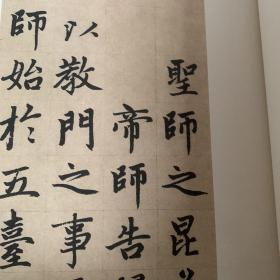 聖師之昆
帝師告
以教門之事
師始於五臺